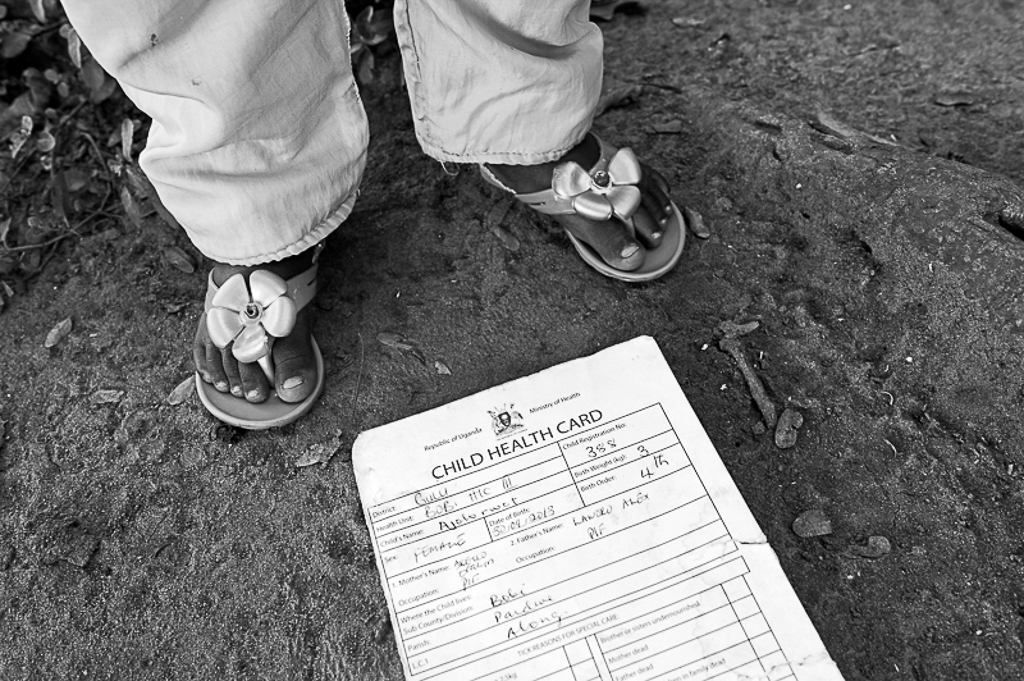 Republic of Uganda Ministry of Health
CHILD HEALTH CARD
District: GULU
Child Registration No: 388
Health Unit: BOBI HC III
Birth Weight (kg): 3
Child's Name:
Birth Order: 4th
Sex: FEMALE
Date of Birth: 30/09/2013
1. Mother's Name:
2. Father's Name: ALEX
Occupation: PIF
Occupation: PIF
Where the Child lives:
Sub County/Division: Bobi
Parish: Paidwe
L.C.1 Along.
TICK REASONS FOR SPECIAL CARE:
Brother or sisters undernourished
Mother dead
Father dead
in family dead